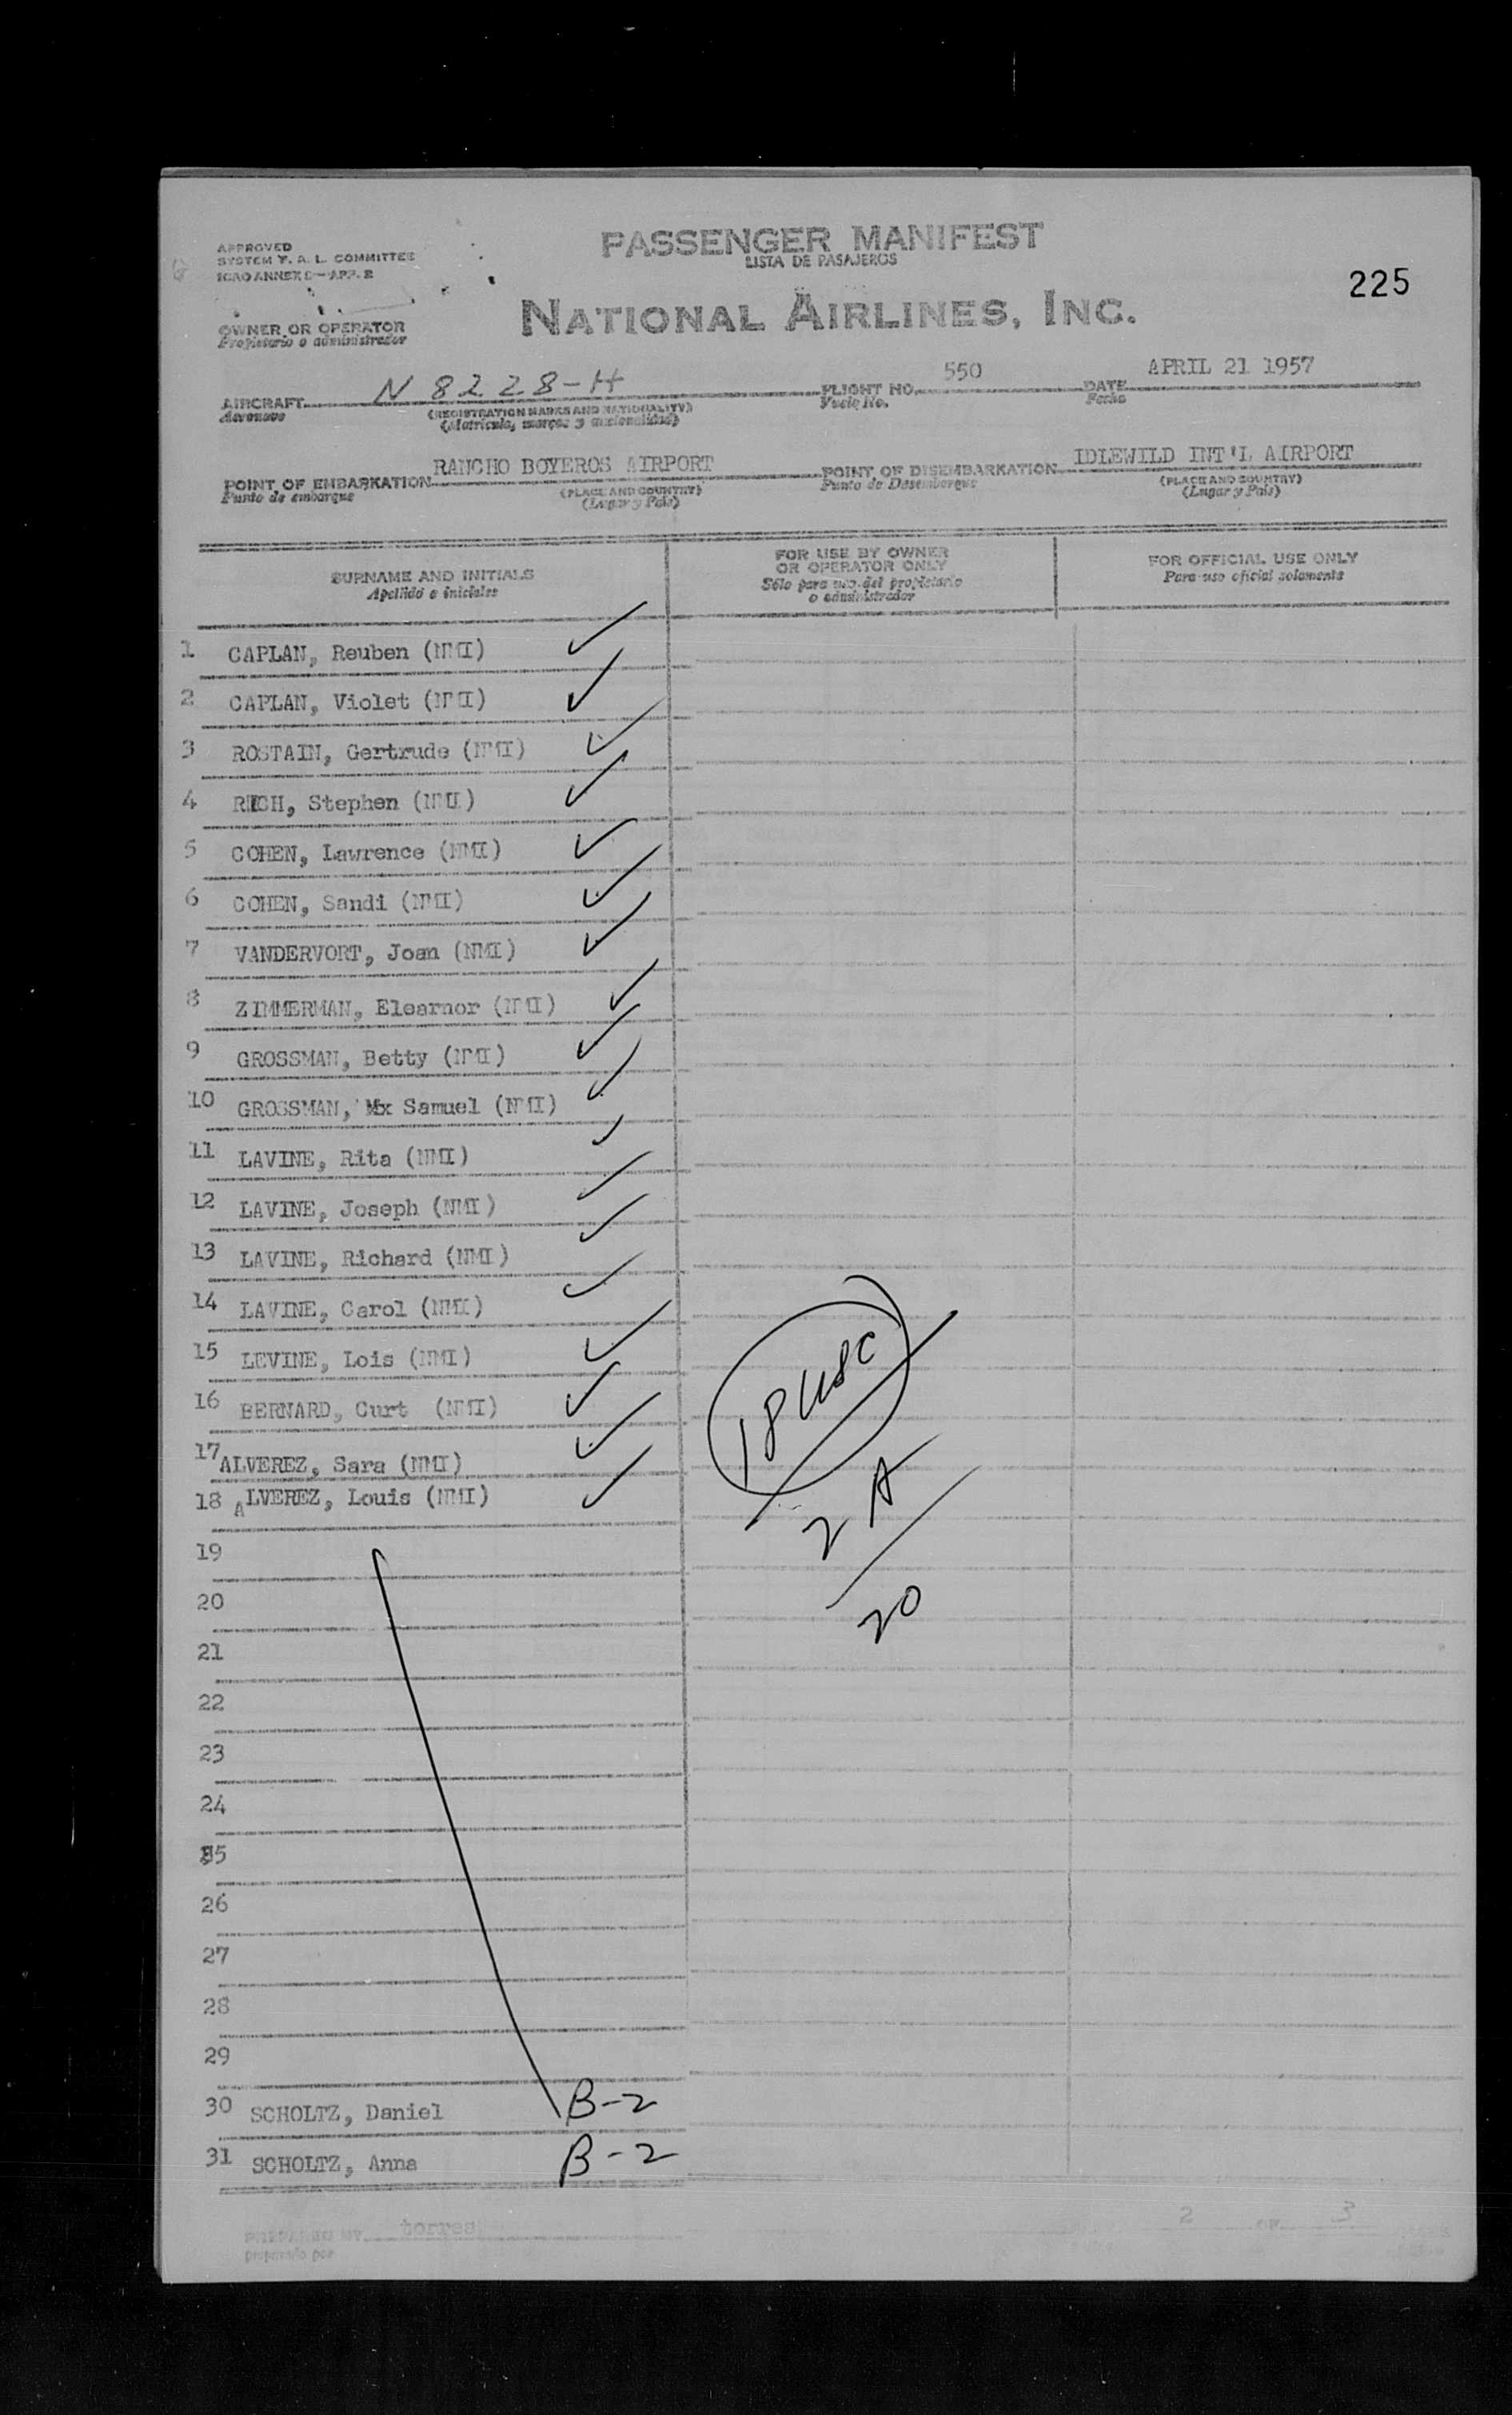 APPROVED
SYSTEM F. A. L. COMMITTEE
ICAO ANNEX 9 — APP. 2
PASSENGER MANIFEST
LISTA DE PASAJEROS
225
NATIONAL AIRLINES, INC.
OWNER OR OPERATOR
Propietario o administrador
AIRCRAFT N 8228-H FLIGHT NO. 550 DATE APRIL 21 1957
Aeronave (REGISTRATION MARKS AND NATIONALITY) Vuelo No. Fecha
(Matrícula, marças y nacionalidad)
POINT OF EMBARKATION RANCHO BOYEROS AIRPORT POINT OF DISEMBARKATION IDLEWILD INT'L AIRPORT
Punto de embarque (PLACE AND COUNTRY) Punto de Desembarque (PLACE AND COUNTRY)
(Lugar y País) (Lugar y País)
SURNAME AND INITIALS FOR USE BY OWNER OR OPERATOR ONLY FOR OFFICIAL USE ONLY
Apellido e iniciales Sólo para uso del propietario o administrador Para uso oficial solamente
1 CAPLAN, Reuben (NMI) ✓
2 CAPLAN, Violet (NMI) ✓
3 ROSTAIN, Gertrude (NMI) ✓
4 RICH, Stephen (NMI) ✓
5 COHEN, Lawrence (NMI) ✓
6 COHEN, Sandi (NMI) ✓
7 VANDERVORT, Joan (NMI) ✓
8 ZIMMERMAN, Elearnor (NMI) ✓
9 GROSSMAN, Betty (NMI) ✓
10 GROSSMAN, Mx Samuel (NMI) ✓
11 LAVINE, Rita (NMI) ✓
12 LAVINE, Joseph (NMI) ✓
13 LAVINE, Richard (NMI) ✓
14 LAVINE, Carol (NMI) ✓
15 LEVINE, Lois (NMI) ✓
16 BERNARD, Curt (NMI) ✓
17 ALVEREZ, Sara (NMI) ✓
18 ALVEREZ, Louis (NMI) ✓
18 USC
2 A
20
19
20
21
22
23
24
25
26
27
28
29
30 SCHOLTZ, Daniel B-2
31 SCHOLTZ, Anna B-2
PREPARED BY torres 2 OF 3
preparado por